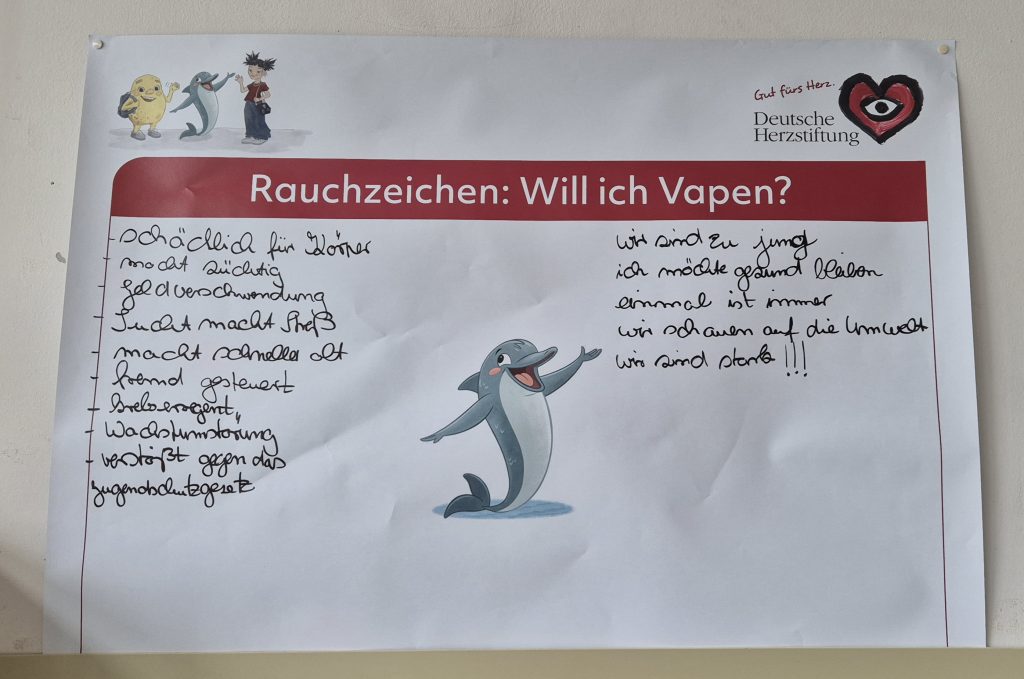 Gut fürs Herz.
Deutsche
Herzstiftung
Rauchzeichen: Will ich Vapen?
- schädlich für Körper
- macht süchtig
- Geldverschwendung
- Sucht macht Streß
- macht schneller alt
- fremd gesteuert
- krebserregent
- Wachstumstörung
- verstößt gegen das
Jugendschutzgesetz
wir sind zu jung
ich möchte gesund bleiben
einmal ist immer
wir schauen auf die Umwelt
wir sind stark !!!